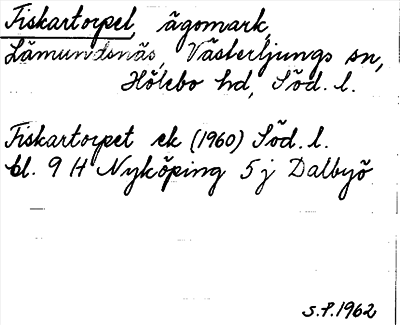 Fiskartorpet, ägomark,
Lämundsnäs, Västerljungs sn,
Hölebo hd, Söd. l.
Fiskartorpet ek (1960) Söd. l.
bl. 9 H Nyköping 5 j Dalbyö
S.P. 1962